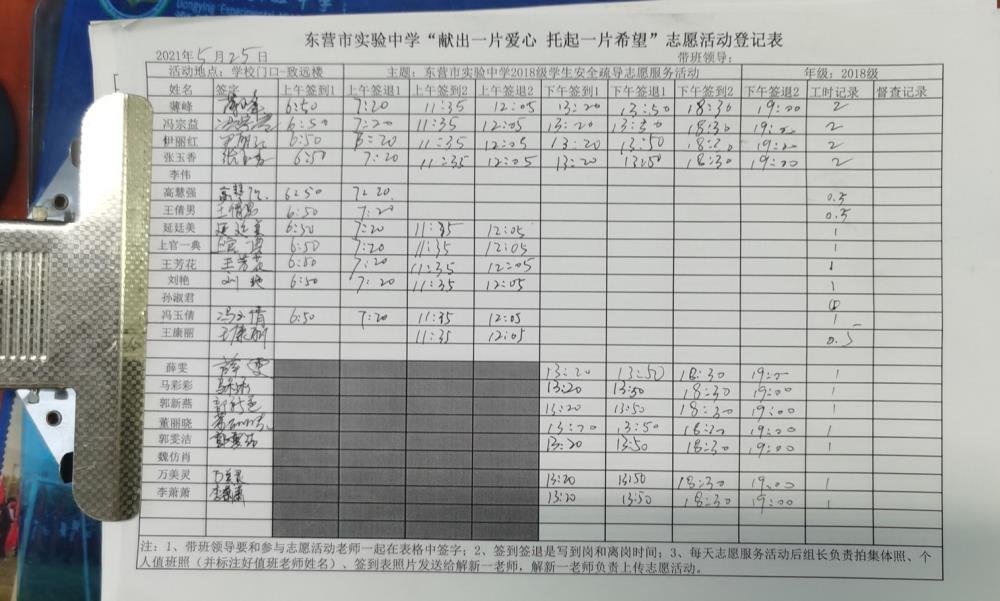 Dongying Experimental
东营市实验中学“献出一片爱心 托起一片希望”志愿活动登记表
2021年5月25日 带班领导:
活动地点：学校门口-致远楼 主题：东营市实验中学2018级学生安全疏导志愿服务活动 年级：2018级
姓名 签字 上午签到1 上午签退1 上午签到2 上午签退2 下午签到1 下午签退1 下午签到2 下午签退2 工时记录 督查记录
薄峰 6:50 7:20 11:35 12:05 13:20 13:50 18:30 19:00 2
冯宗益 冯宗益 6:50 7:20 11:35 12:05 13:20 13:50 18:30 19:00 2
伊丽红 伊丽红 6:50 7:20 11:35 12:05 13:20 13:50 18:30 19:00 2
张玉香 张玉香 6:50 7:20 11:35 12:05 13:20 13:50 18:30 19:00 2
李伟
高慧强 高慧强 6:50 7:20 0.5
王倩男 王倩男 6:50 7:20 0.5
延廷美 延廷美 6:50 7:20 11:35 12:05 1
上官一典 6:50 7:20 11:35 12:05 1
王芳花 王芳花 6:50 7:20 11:35 12:05 1
刘艳 刘艳 6:50 7:20 11:35 12:05 1
孙淑君
冯玉倩 冯玉倩 6:50 7:20 11:35 12:05 1
王康丽 王康丽 11:35 12:05 0.5
薛雯 薛雯 13:20 13:50 18:30 19:00 1
马彩彩 马彩彩 13:20 13:50 18:30 19:00 1
郭新燕 13:20 13:50 18:30 19:00 1
董丽晓 13:20 13:50 18:30 19:00 1
郭雯洁 郭雯洁 13:20 13:50 18:30 19:00 1
魏仿肖
万美灵 万美灵 13:20 13:50 18:30 19:00 1
李萧萧 李萧萧 13:20 13:50 18:30 19:00 1
注：1、带班领导要和参与志愿活动老师一起在表格中签字；2、签到签退是写到岗和离岗时间；3、每天志愿服务活动后组长负责拍集体照、个
人值班照（并标注好值班老师姓名）、签到表照片发送给解新一老师，解新一老师负责上传志愿活动。